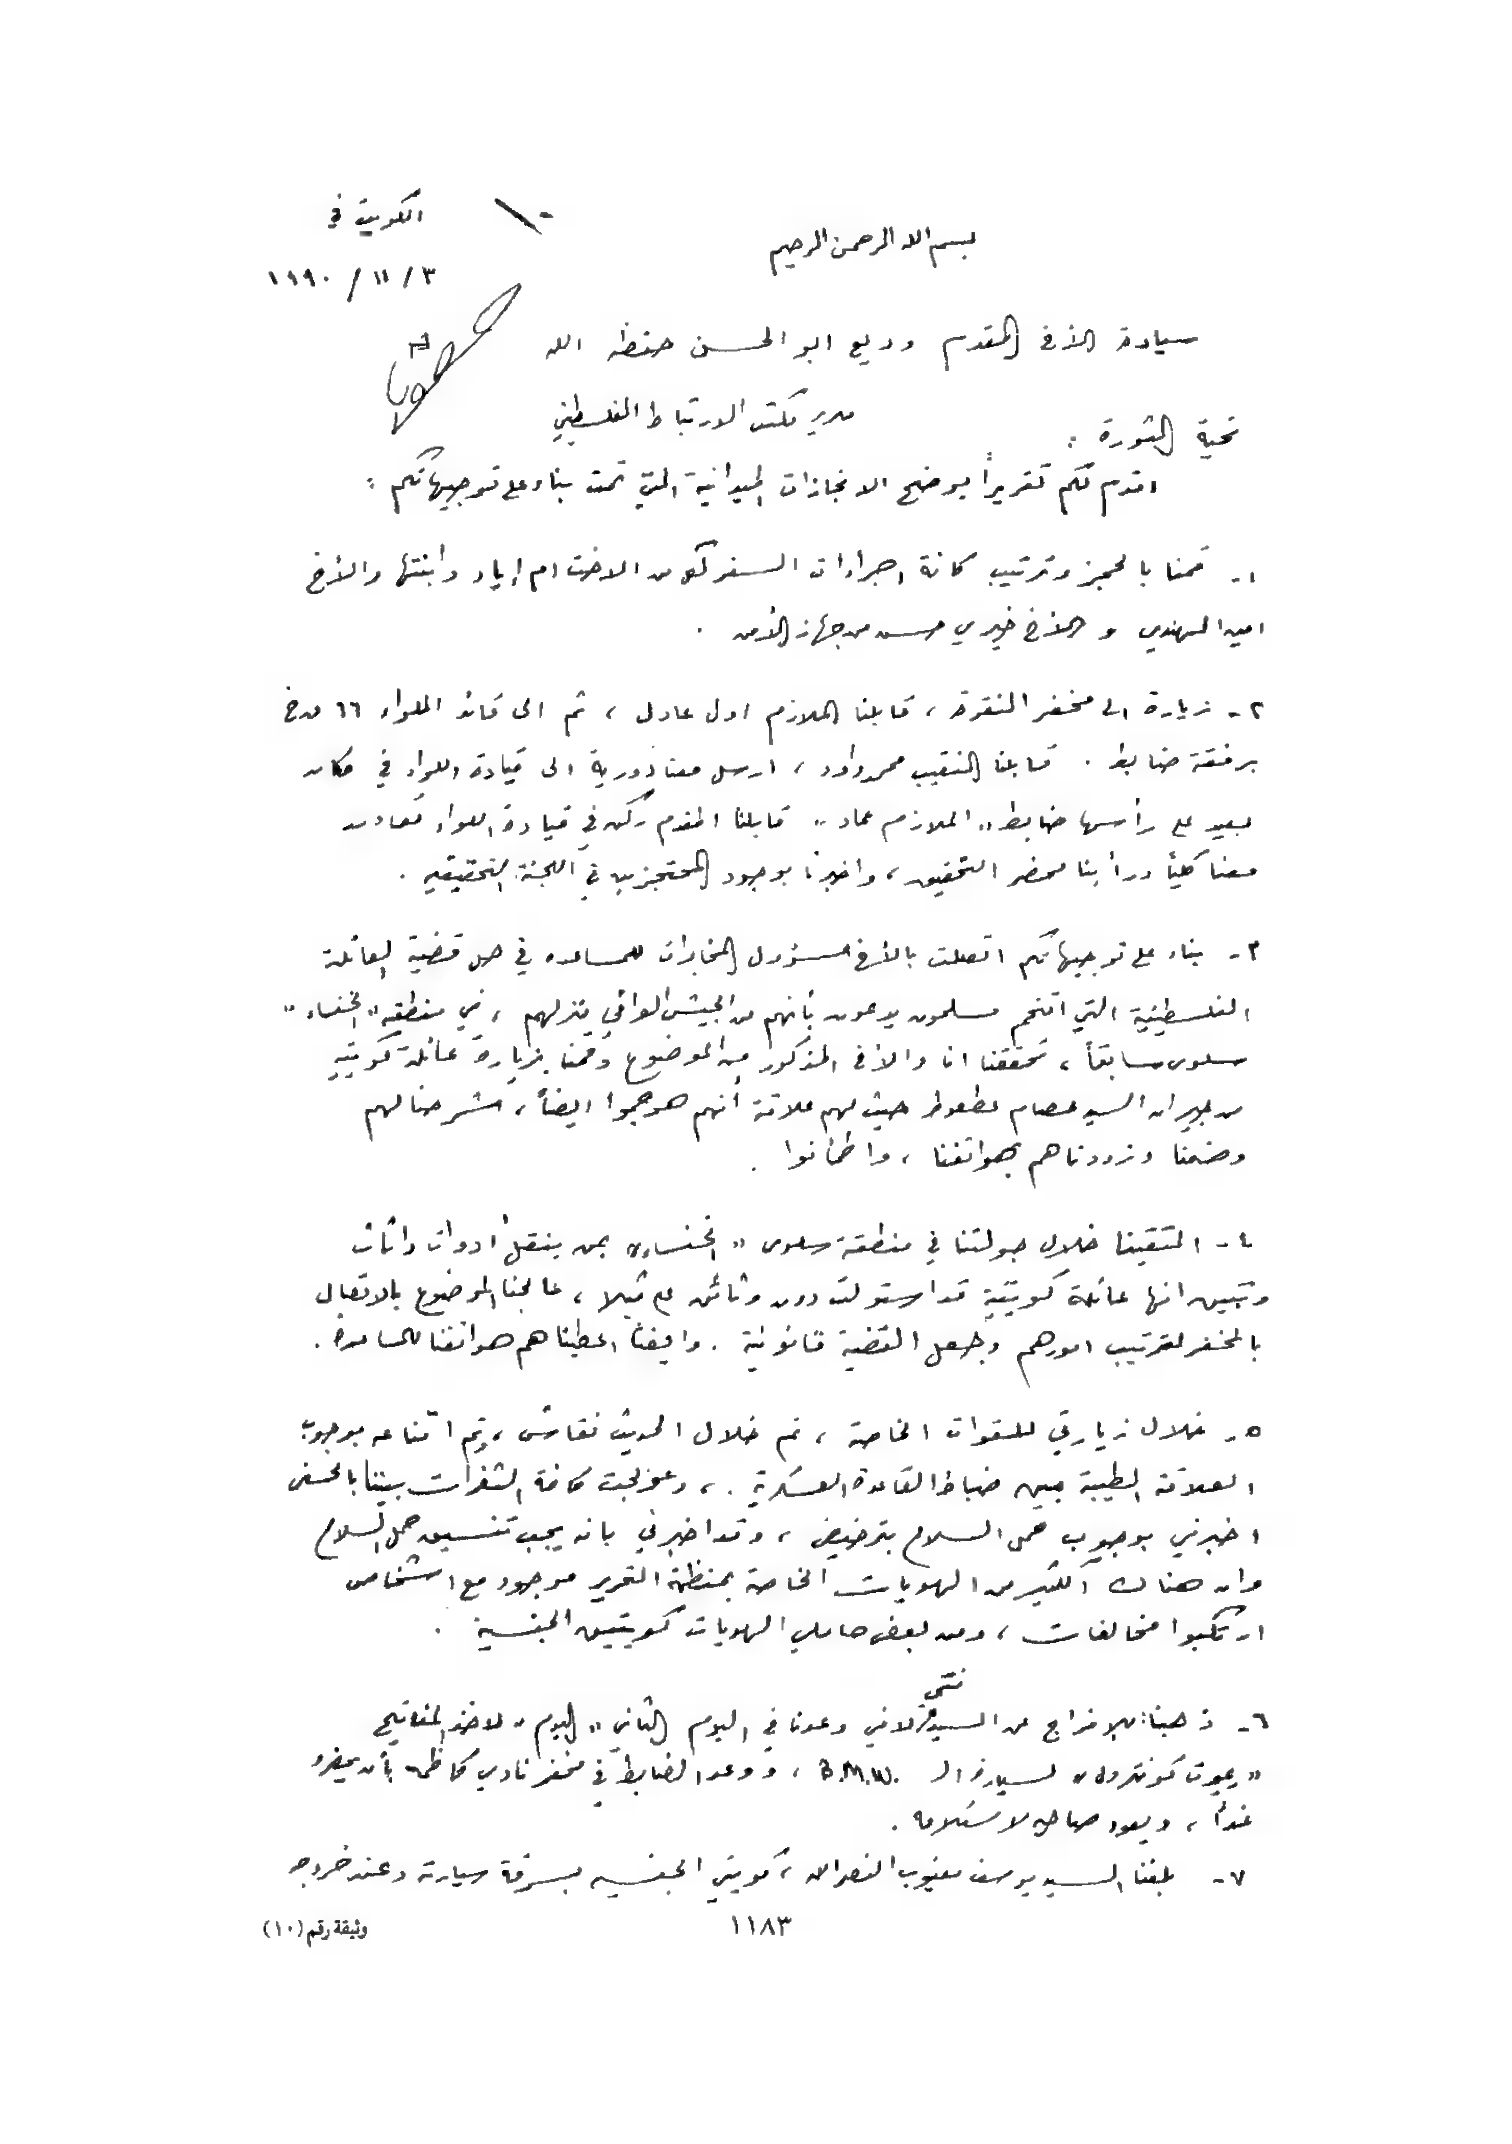 الكويت في
بسم الله الرحمن الرحيم
١٩٩٠/١١/٣
سيادة الأخ المقدم وديع ابو الحسن حفظه الله
مدير مكتب الارتباط الفلسطيني
تحية الثورة :
اقدم لكم تقريراً يوضح الانجازات الميدانية التي تمت بناء على توجيهاتكم :
١- قمنا بالحجز وترتيب كافة اجراءات السفر لكل من الاخت ام إياد وابنتها والأخ
امين الهندي و الأخ خيري حسن من جهاز الأمن .
٢- زيارة الى مخفر النقرة ، قابلنا الملازم اول عادل ، ثم الى قائد اللواء ٦٦
برفقة ضابط . قابلنا النقيب محمد داود ، ارسل معنا دورية الى قيادة اللواء في مكان
بعيد على رأسها ضابط " الملازم عماد " قابلنا المقدم ركن في قيادة اللواء تعاون
معنا كلياً ورأينا محضر التحقيق ، واخبرنا بوجود المحتجزين في اللجنة التحقيقيه .
٣- بناء على توجيهاتكم اتصلت بالأخ مسؤول المخابرات للمساعده في حل قضية العائلة
الفلسطينية التي اقتحم مسلحون يدعون بأنهم من الجيش العراقي منزلهم ، في منطقة " الخنساء "
سلوى سابقاً ، تحققنا انا والأخ المذكور من الموضوع وقمنا بزيارة عائلة كويتيه
من جيران السيد عصام حيث لهم علاقة أنهم هوجموا ايضاً ، شرحنا لهم
وضعنا وزودناهم بهواتفنا ، واطمأنوا .
٤- التقينا خلال جولتنا في منطقة سلوى " الخنساء " بمن ينقل أدوات واثاث
وتبين انها عائلة كويتية قد استولت دون وثائق على فيلا ، عالجنا الموضوع بالاتصال
بالمخفر لترتيب امورهم وجعل القضية قانونية . وايضاً اعطيناهم هواتفنا للمساعدة .
٥- خلال زيارتي للقوات الخاصة ، تم خلال الحديث نقاش ، وتم اقناعه بوجوب
العلاقة الطيبة بين ضباط القاعدة العسكرية . ، وعولجت كافة الثغرات بيننا بالحسنى
اخبرني بوجوب حمل السلاح بترخيص ، وقد اخبرني بانه يجب تنسيق حمل السلاح
وان هناك الكثير من الهويات الخاصة بمنظمة التحرير موجود مع اشخاص
ارتكبوا مخالفات ، ومن بعض حاملي الهويات كويتيين الجنسية .
٦- ذهبنا للإفراج عن السيد فتحي وعدنا في اليوم الثاني " اليوم " لاخذ المفاتيح
" ريموت كونترول " لسيارة الـ B.M.W. ، ووعد الضابط في مخفر نادي كاظمه بأن يحضره
غداً ، ويعود صاحبه لاستلامه .
٧- بلغنا السيد يوسف النصرالله ، كويتي الجنسيه بسرقة سيارته وعند خروجه
١١٨٣
وثيقة رقم (١٠)